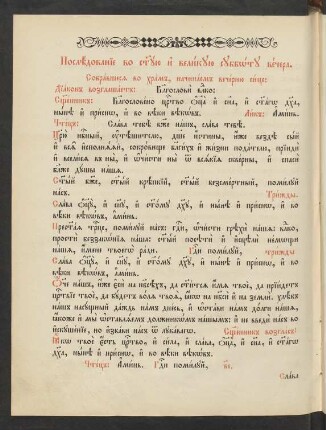 Послѣдованїе во ст҃ꙋю и҆ великꙋю сꙋббѡ́тꙋ ве́чера.
Собра́вшеся во хра́мъ, начина́емъ вече́рню си́це:
Дїа́конъ возглаша́етъ: Бл҃гословѝ влⷣко:
Сщ҃е́нникъ: Бл҃гослове́но црⷭ҇тво ѻ҆ц҃а̀ и҆ сн҃а, и҆ ст҃а́гѡ дх҃а,
ны́нѣ и҆ при́снѡ, и҆ во вѣ́ки вѣкѡ́въ. Ли́къ: А҆ми́нь.
Чте́цъ: Сла́ва тебѣ̀ бж҃е на́шъ, сла́ва тебѣ̀.
Цр҃ю̀ нбⷭ҇ный, ᲂу҆тѣ́шителю, дш҃е и҆́стины, и҆́же вездѣ̀ сы́й
и҆ всѧ̑ и҆сполнѧ́ѧй, сокро́вище бл҃ги́хъ и҆ жи́зни пода́телю, прїидѝ
и҆ всели́сѧ въ ны̀, и҆ ѡ҆чи́сти ны̀ ѿ всѧ́кїѧ скве́рны, и҆ спасѝ
бл҃же дꙋ́шы на́шѧ.
Ст҃ы́й бж҃е, ст҃ы́й крѣ́пкїй, ст҃ы́й безсме́ртный, поми́лꙋй
на́съ. Три́жды.
Сла́ва ѻ҆ц҃ꙋ̀, и҆ сн҃ꙋ, и҆ ст҃о́мꙋ дх҃ꙋ, и҆ ны́нѣ и҆ при́снѡ, и҆ во
вѣ́ки вѣкѡ́въ, а҆ми́нь.
Прест҃а́ѧ трⷪ҇це, поми́лꙋй на́съ: гдⷭ҇и, ѡ҆чи́сти грѣхѝ на́шѧ: влⷣко,
простѝ беззакѡ́нїѧ на́ша: ст҃ы́й посѣтѝ и҆ и҆сцѣлѝ не́мѡщи
на́шѧ, и҆́мене твоегѡ̀ ра́ди. Гдⷭ҇и поми́лꙋй, три́жды
Сла́ва ѻ҆ц҃ꙋ̀, и҆ сн҃ꙋ, и҆ ст҃о́мꙋ дх҃ꙋ, и҆ ны́нѣ и҆ при́снѡ, и҆ во
вѣ́ки вѣкѡ́въ а҆ми́нь.
Ѻ҆́ч҃е на́шъ, и҆́же є҆сѝ на нб҃сѣ́хъ, да ст҃и́тсѧ и҆́мѧ твоѐ, да прїи́детъ
црⷭ҇твїе твоѐ, да бꙋ́детъ во́лѧ твоѧ̀, ꙗ҆́кѡ на нб҃сѝ и҆ на землѝ. хлѣ́бъ
на́шъ насꙋ́щный да́ждь на́мъ дне́сь, и҆ ѡ҆ста́ви на́мъ до́лги на́шѧ,
ꙗ҆́коже и҆ мы̀ ѡ҆ставлѧ́емъ должникѡ́мъ на́шымъ: и҆ не введѝ на́съ во
и҆скꙋше́нїе, но и҆зба́ви на́съ ѿ лꙋка́вагѡ. Сщ҃е́нникъ возгла́съ:
Ꙗ҆́кѡ твоѐ є҆́сть црⷭ҇тво, и҆ си́ла, и҆ сла́ва, ѻ҆ц҃а̀, и҆ сн҃а, и҆ ст҃а́гѡ
дх҃а, ны́нѣ и҆ при́снѡ, и҆ во вѣ́ки вѣкѡ́въ.
Чте́цъ: А҆ми́нь. Гдⷭ҇и поми́лꙋй, в҃і.
Сла́ва